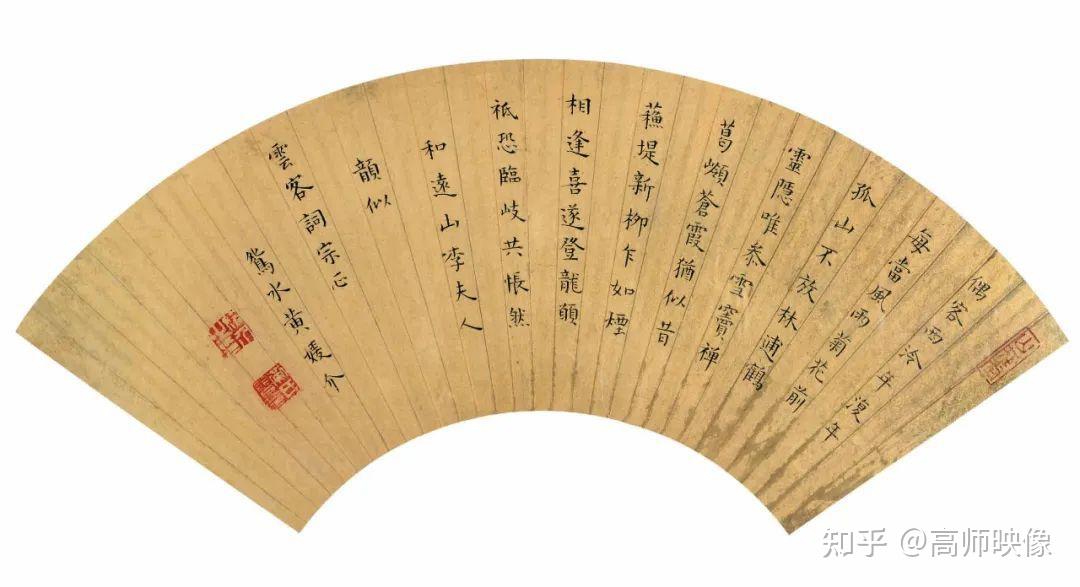 偶客西泠年復年
每當風雨菊花前
孤山不放林逋鶴
靈隱唯参雪竇禪
葛嶺蒼霞猶似昔
蘓堤新柳乍如煙
相逢喜遂登龍願
祗恐臨岐共悵然
和遠山李夫人
韻似
雲客詞宗正
鴛水黃媛介
知乎 @高师映像